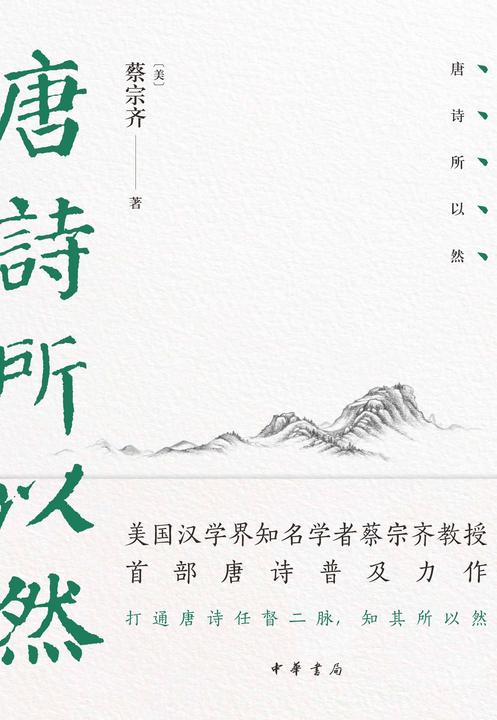 唐詩所以然
[美]
蔡宗齐
著
唐诗所以然
美国汉学界知名学者蔡宗齐教授
首部唐诗普及力作
打通唐诗任督二脉，知其所以然
中华书局